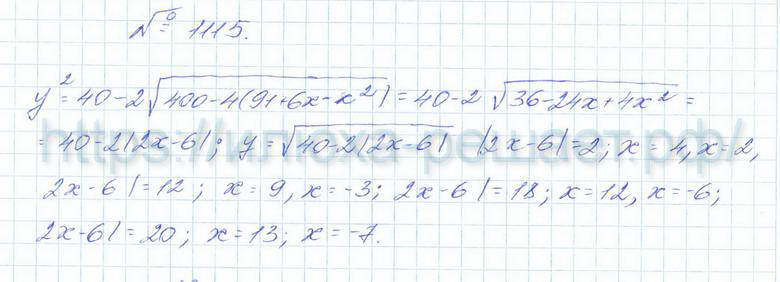 № 1115.
y² = 40-2√(400-4(91+6x-x²)) = 40-2√(36-24x+4x²) =
= 40-2|2x-6|; y = √(40-2|2x-6|) |2x-6|=2; x = 4, x = 2,
2x-6|=12; x = 9, x = -3; 2x-6|=18; x = 12, x = -6;
2x-6|=20; x = 13; x = -7.
https://илюха-решает.рф/